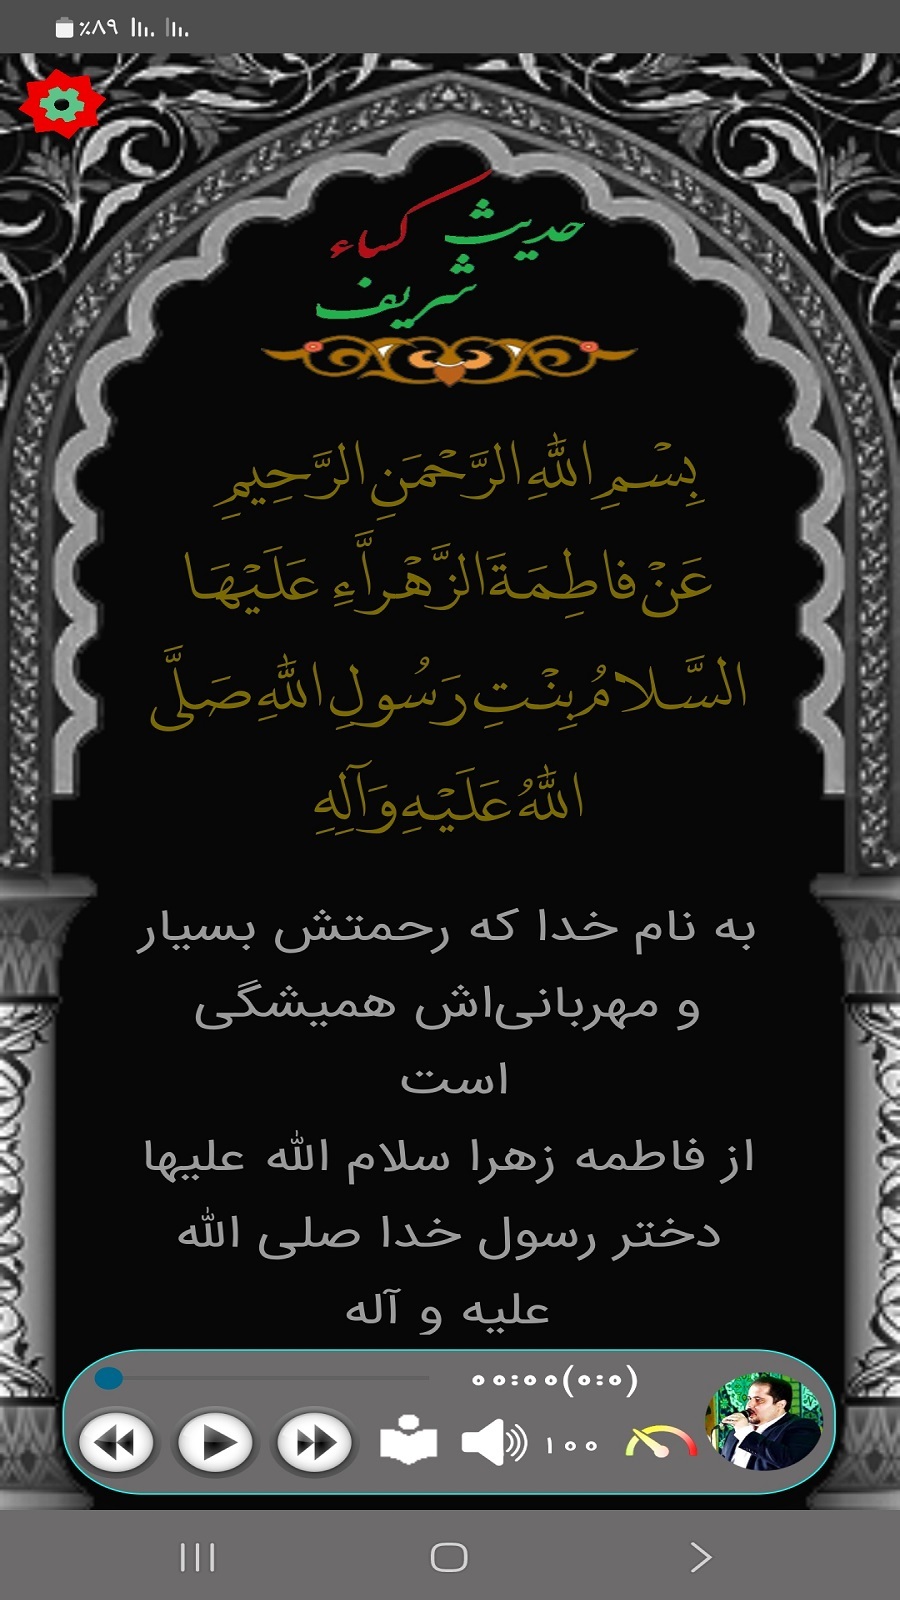 ٪۸۹
حدیث کساء
شریف
بِسْمِ اللهِ الرَّحْمَنِ الرَّحِيمِ
عَنْ فاطِمَةَ الزَّهْراَّءِ عَلَيْهَا
السَّلامُ بِنْتِ رَسُولِ اللهِ صَلَّى
اللهُ عَلَيْهِ وَآلِهِ
به نام خدا که رحمتش بسیار
و مهربانی‌اش همیشگی
است
از فاطمه زهرا سلام الله علیها
دختر رسول خدا صلی الله
علیه و آله
۰۰:۰۰(۰:۰)
۱۰۰